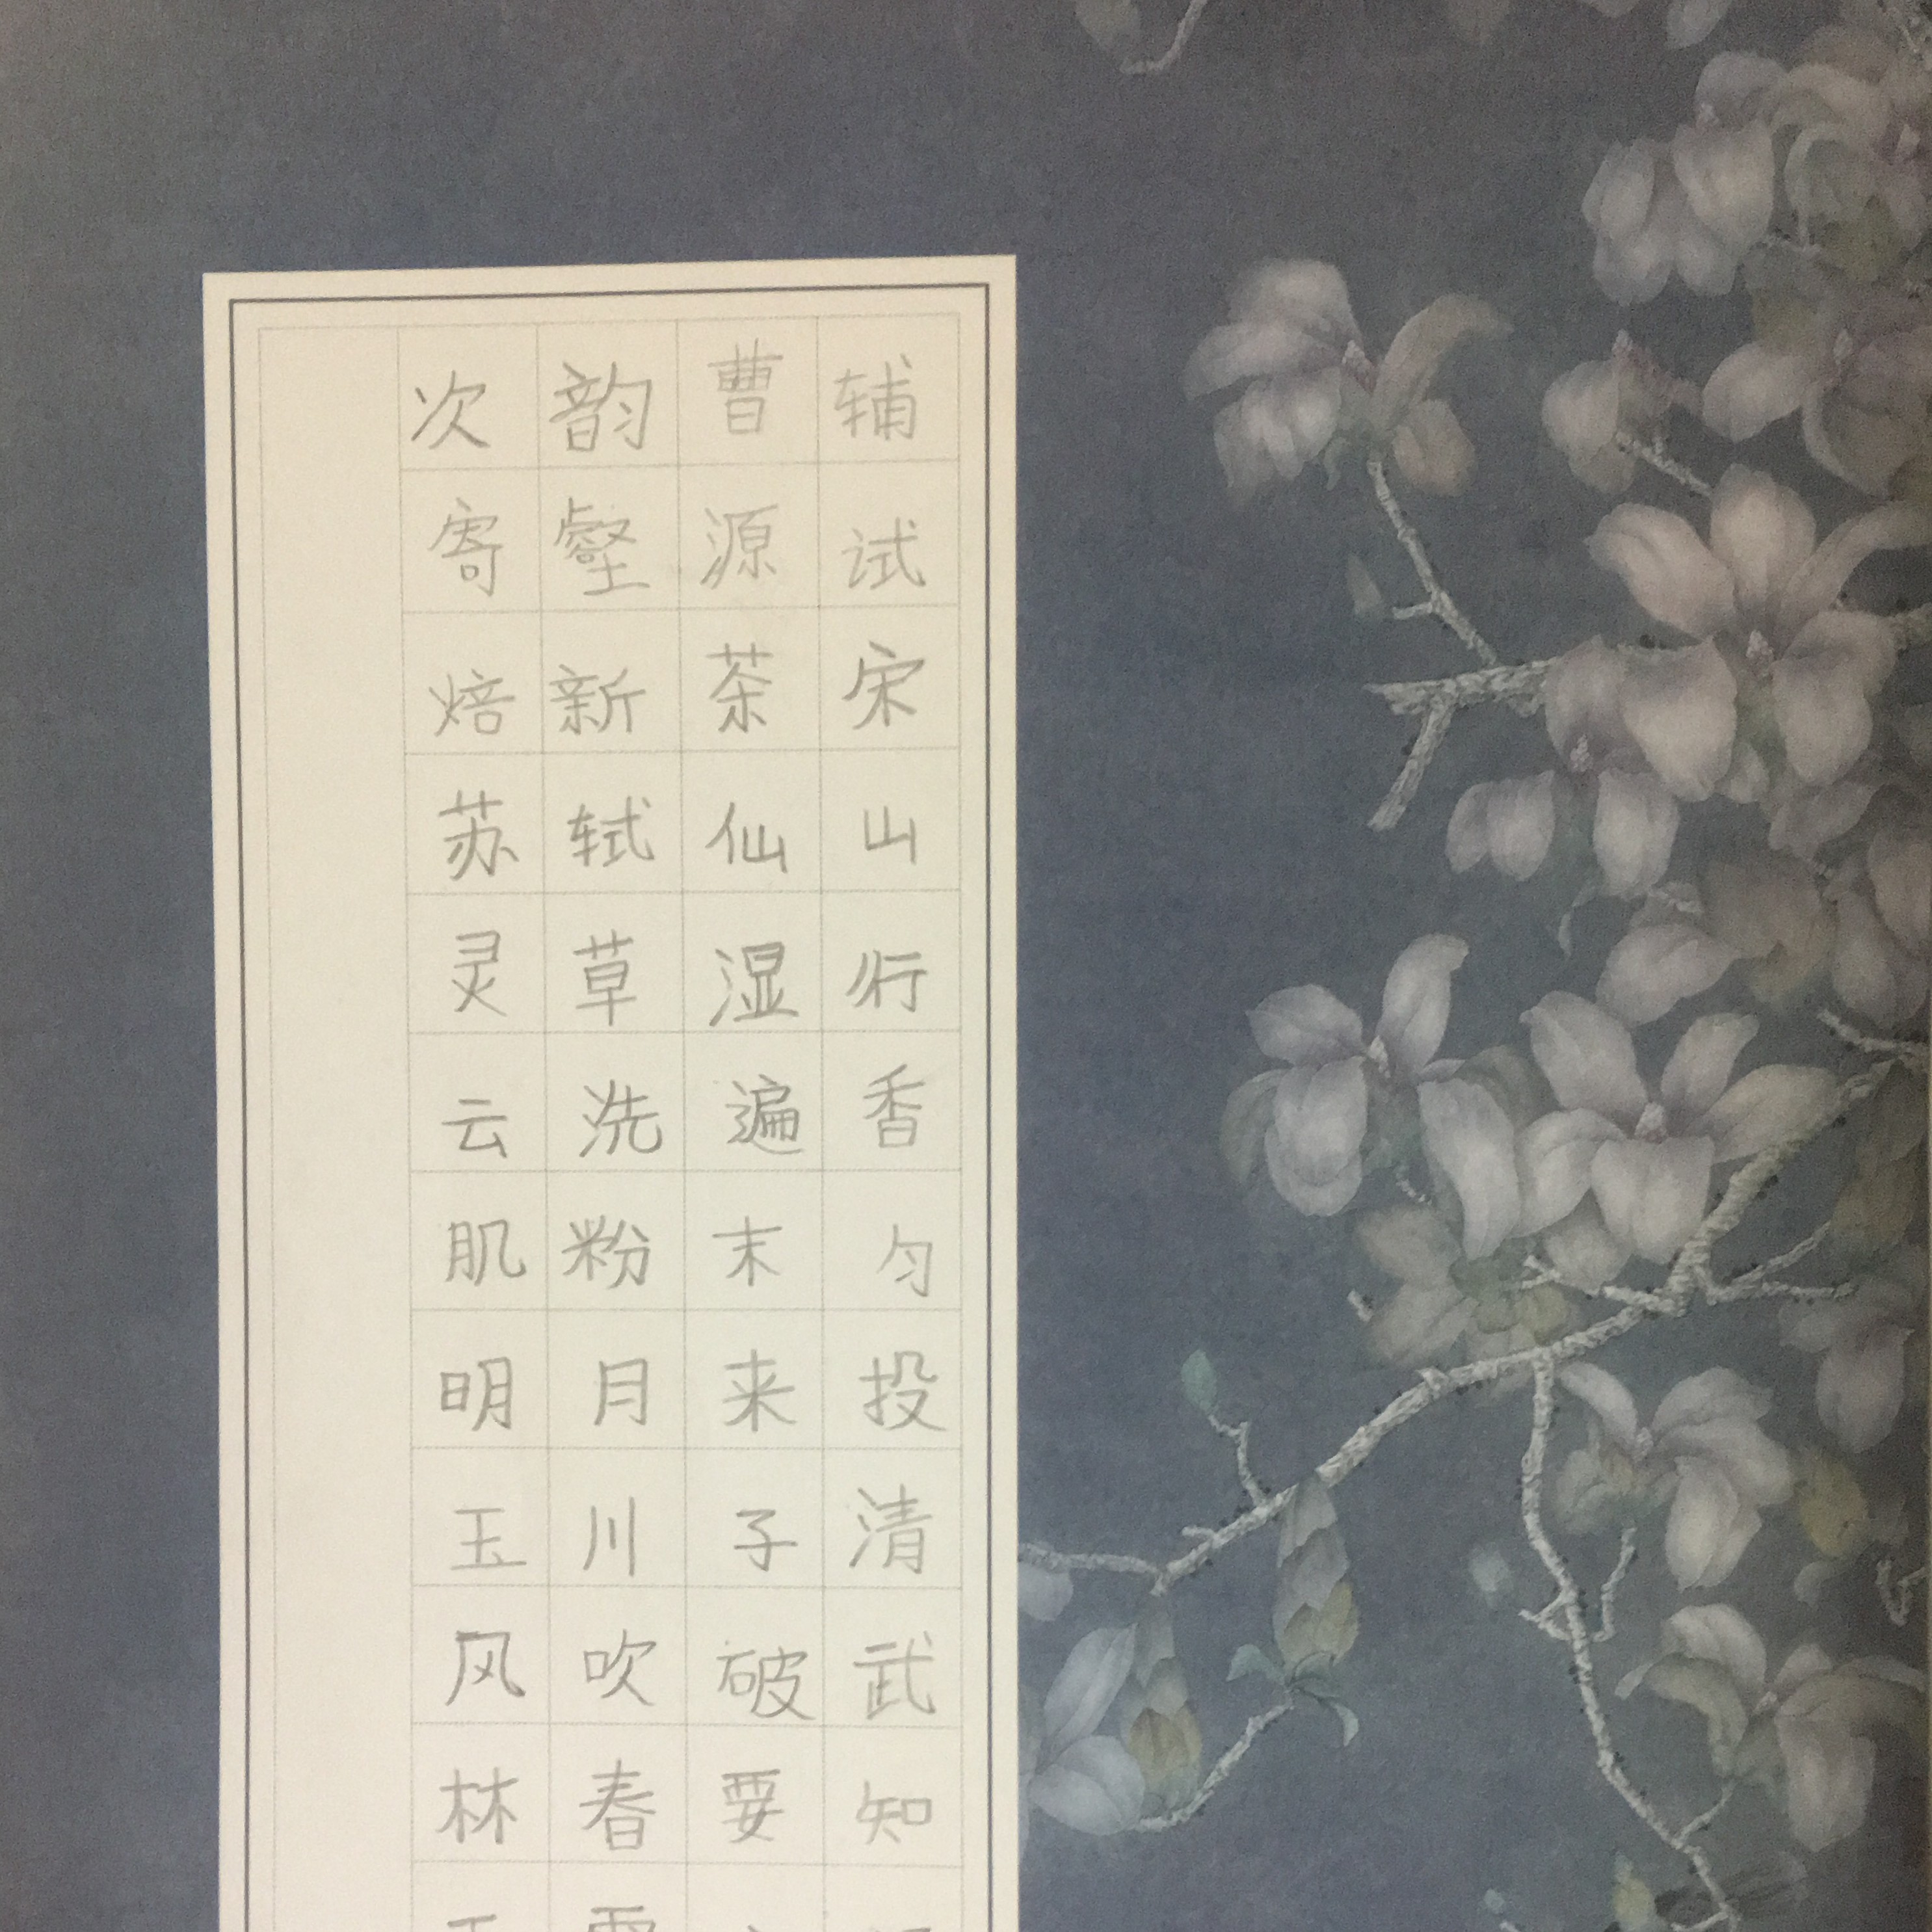 次韵曹辅
寄壑源试
焙新茶宋
苏轼仙山
灵草湿行
云洗遍香
肌粉末匀
明月来投
玉川子清
风吹破武
林春要知